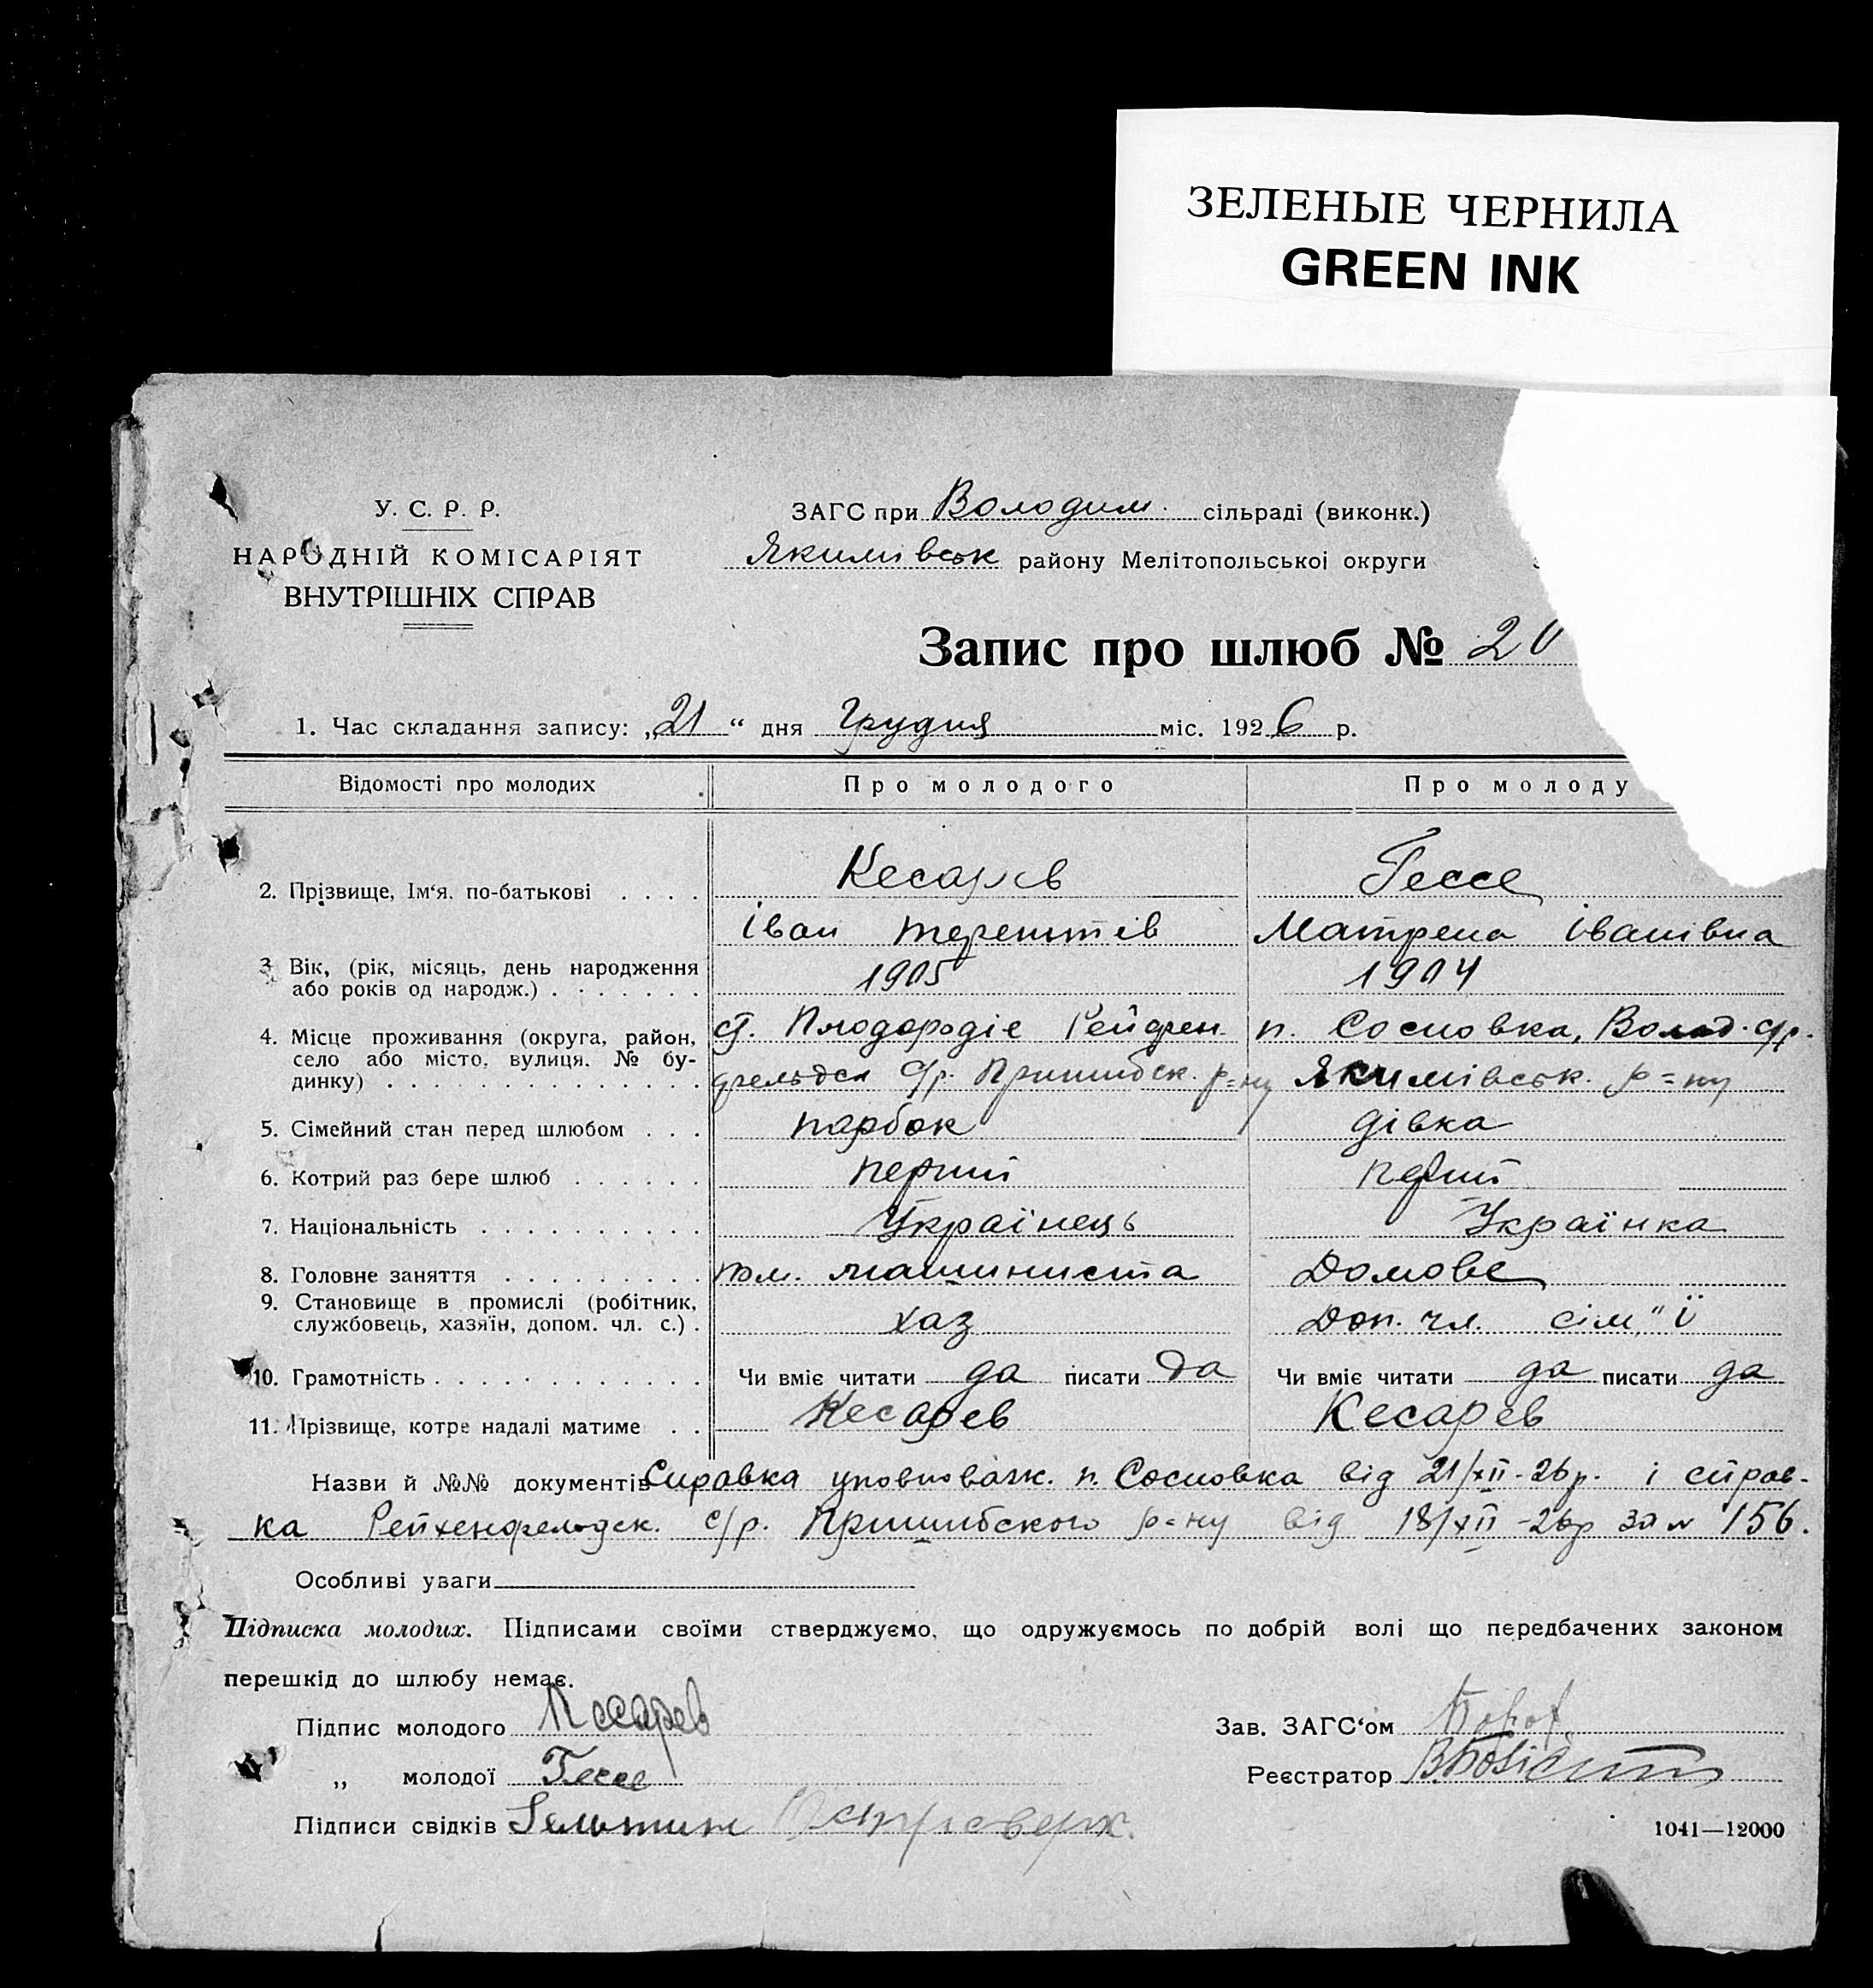 ЗЕЛЕНЫЕ ЧЕРНИЛА
GREEN INK
У. С. Р. Р.
НАРОДНІЙ КОМІСАРІЯТ
ВНУТРІШНІХ СПРАВ
ЗАГС при Володим. сільраді (виконк.)
Якимівськ району Мелітопольської округи
Запис про шлюб № 20
1. Час складання запису: „21“ дня Грудня міс. 1926 р.
Відомості про молодих Про молодого Про молоду
Кесарев Гессе
2. Прізвище, Ім‘я, по-батькові . . . .
Іван Терентіїв Матрена Іванівна
3. Вік, (рік, місяць, день народження
або років од народж.) . . . . . . . 1905 1904
4. Місце проживання (округа, район, ст. Плодородіє п. Сосновка, Волод. с/р.
село або місто, вулиця, № бу-
динку) . . . . . . . . . . . . . . с/р. Пришибск. р=ну Якимівськ. р=ну
5. Сімейний стан перед шлюбом . . . парбок дівка
6. Котрий раз бере шлюб . . . . . . перший перший
7. Національність . . . . . . . . . . Українець Українка
8. Головне заняття . . . . . . . . . машиниста Домове
9. Становище в промислі (робітник,
службовець, хазяїн, допом. чл. с.) . хаз Доп. чл. сім„ї
10. Грамотність . . . . . . . . . . . . Чи вміє читати да писати да Чи вміє читати да писати да
11. Прізвище, котре надалі матиме . . Кесарев Кесарев
Назви й №№ документів Справка уповноваж. п. Сосновка від 21/XII-26р. і справ-
ка Рейхенфельдск. с/р. Пришибского р=ну від 18/XII-26р за № 156.
Особливі уваги
Підписка молодих. Підписами своїми стверджуємо, що одружуємось по добрій волі що передбачених законом
перешкід до шлюбу немає.
Підпис молодого Кесарев Зав. ЗАГС‘ом
„ молодої Гессе Реєстратор
Підписи свідків
1041—12000